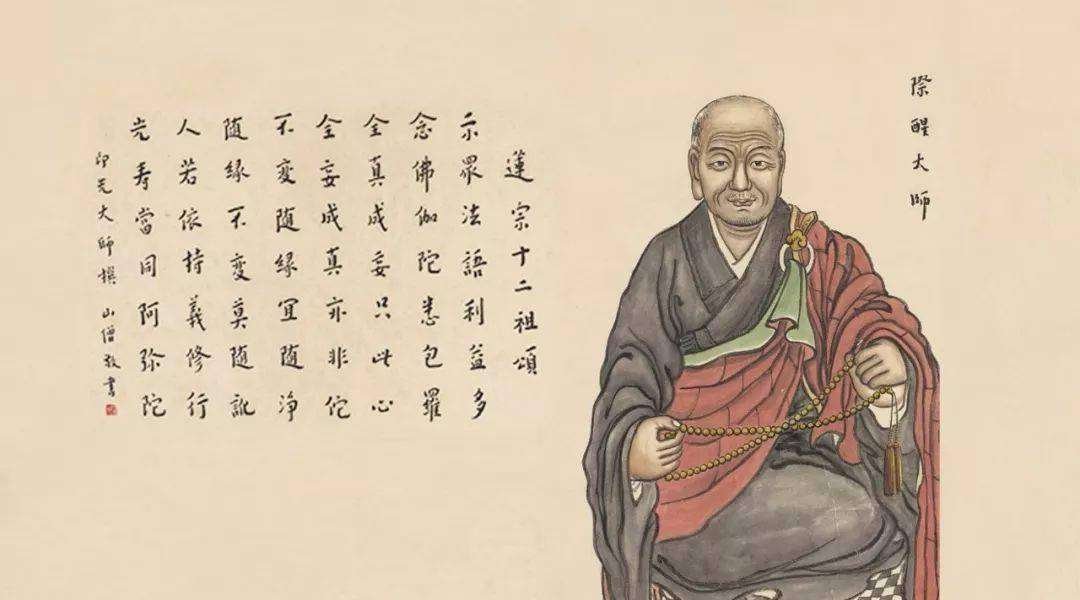 際醒大師
蓮宗十二祖頌
示眾法語利益多
念佛伽陀悉包羅
全真成妄只此心
全妄成真亦非佗
不変随緣宜随浄
随緣不変莫随訛
人若依持義修行
光寿當同阿弥陀
印光大師撰 山僧敬書